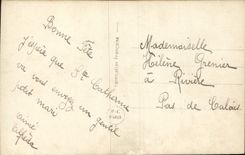 Bonne Fête
j'espère que Ste Catherine
va vous envoyer un gentil
petit mari
aimé
Mademoiselle
Hélène Grenier
à Rivière
Pas de Calais